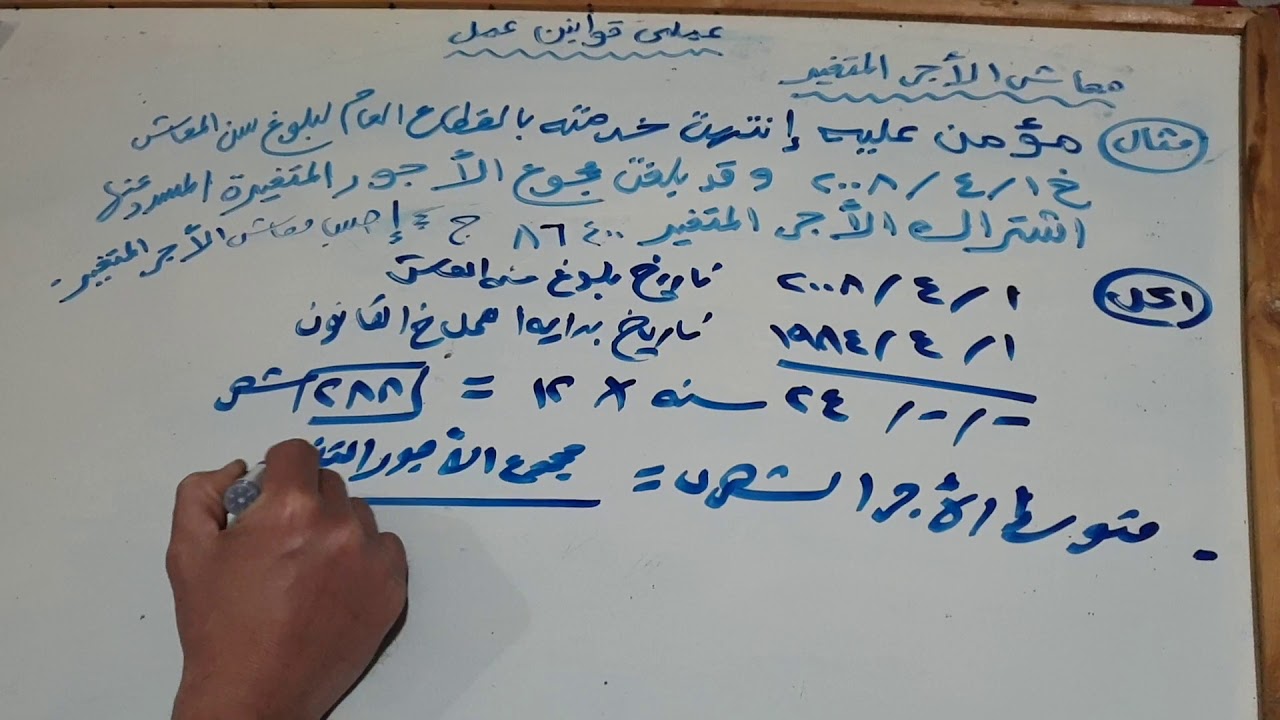 عملى قوانين عمل
معاش الأجر المتغير
مثال مؤمن عليه إنتهت خدمته بالقطاع العام لبلوغ سن المعاش
فى ١/٤/٢٠٠٨ وقد بلغت مجموع الأجور المتغيرة المسدد عنها
اشتراك الأجر المتغير ٨٦٤٠٠ ج إحسب معاش الأجر المتغير.
الحل ١/٤/٢٠٠٨ تاريخ بلوغ سن المعاش
١/٤/١٩٨٤ تاريخ بداية العمل القانون
-/-/٢٤ سنه × ١٢ = ٢٨٨ شهر
متوسط الأجر الشهرى = مجموع الأجور